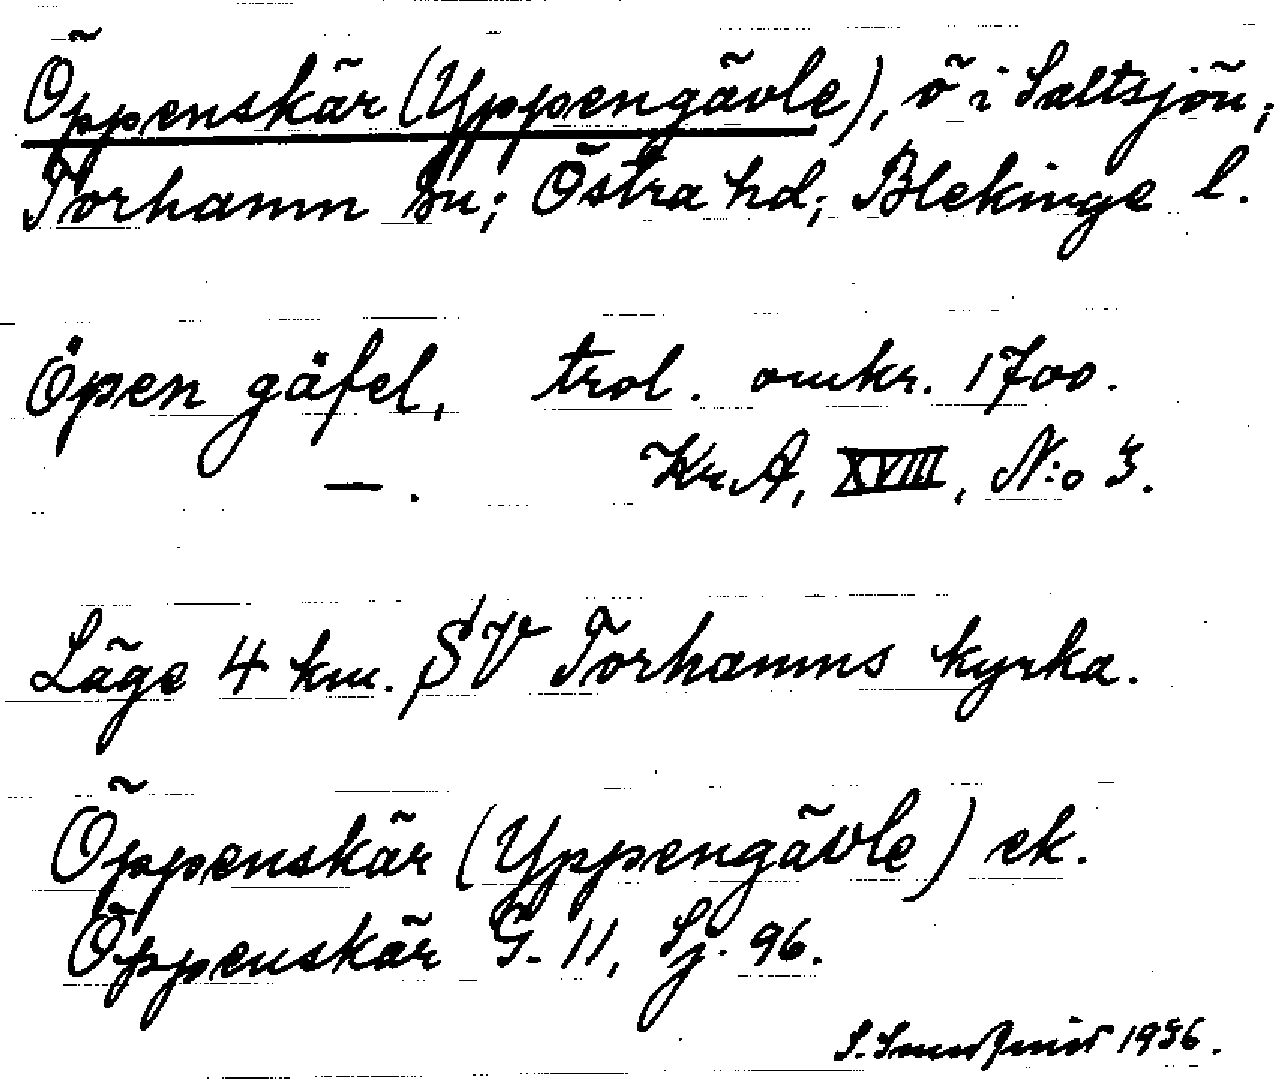 Öppenskär (Yppengävle), ö i Saltsjön;
Torhamn sn; Östra hd; Blekinge l.
Öpen gäfel, trol. omkr. 1700.
— . KrA, XVIII, N:o 3.
Läge 4 km. SV Torhamns kyrka.
Öppenskär (Yppengävle) ek.
Öppenskär G. 11, Sj. 96.
S. 1936.